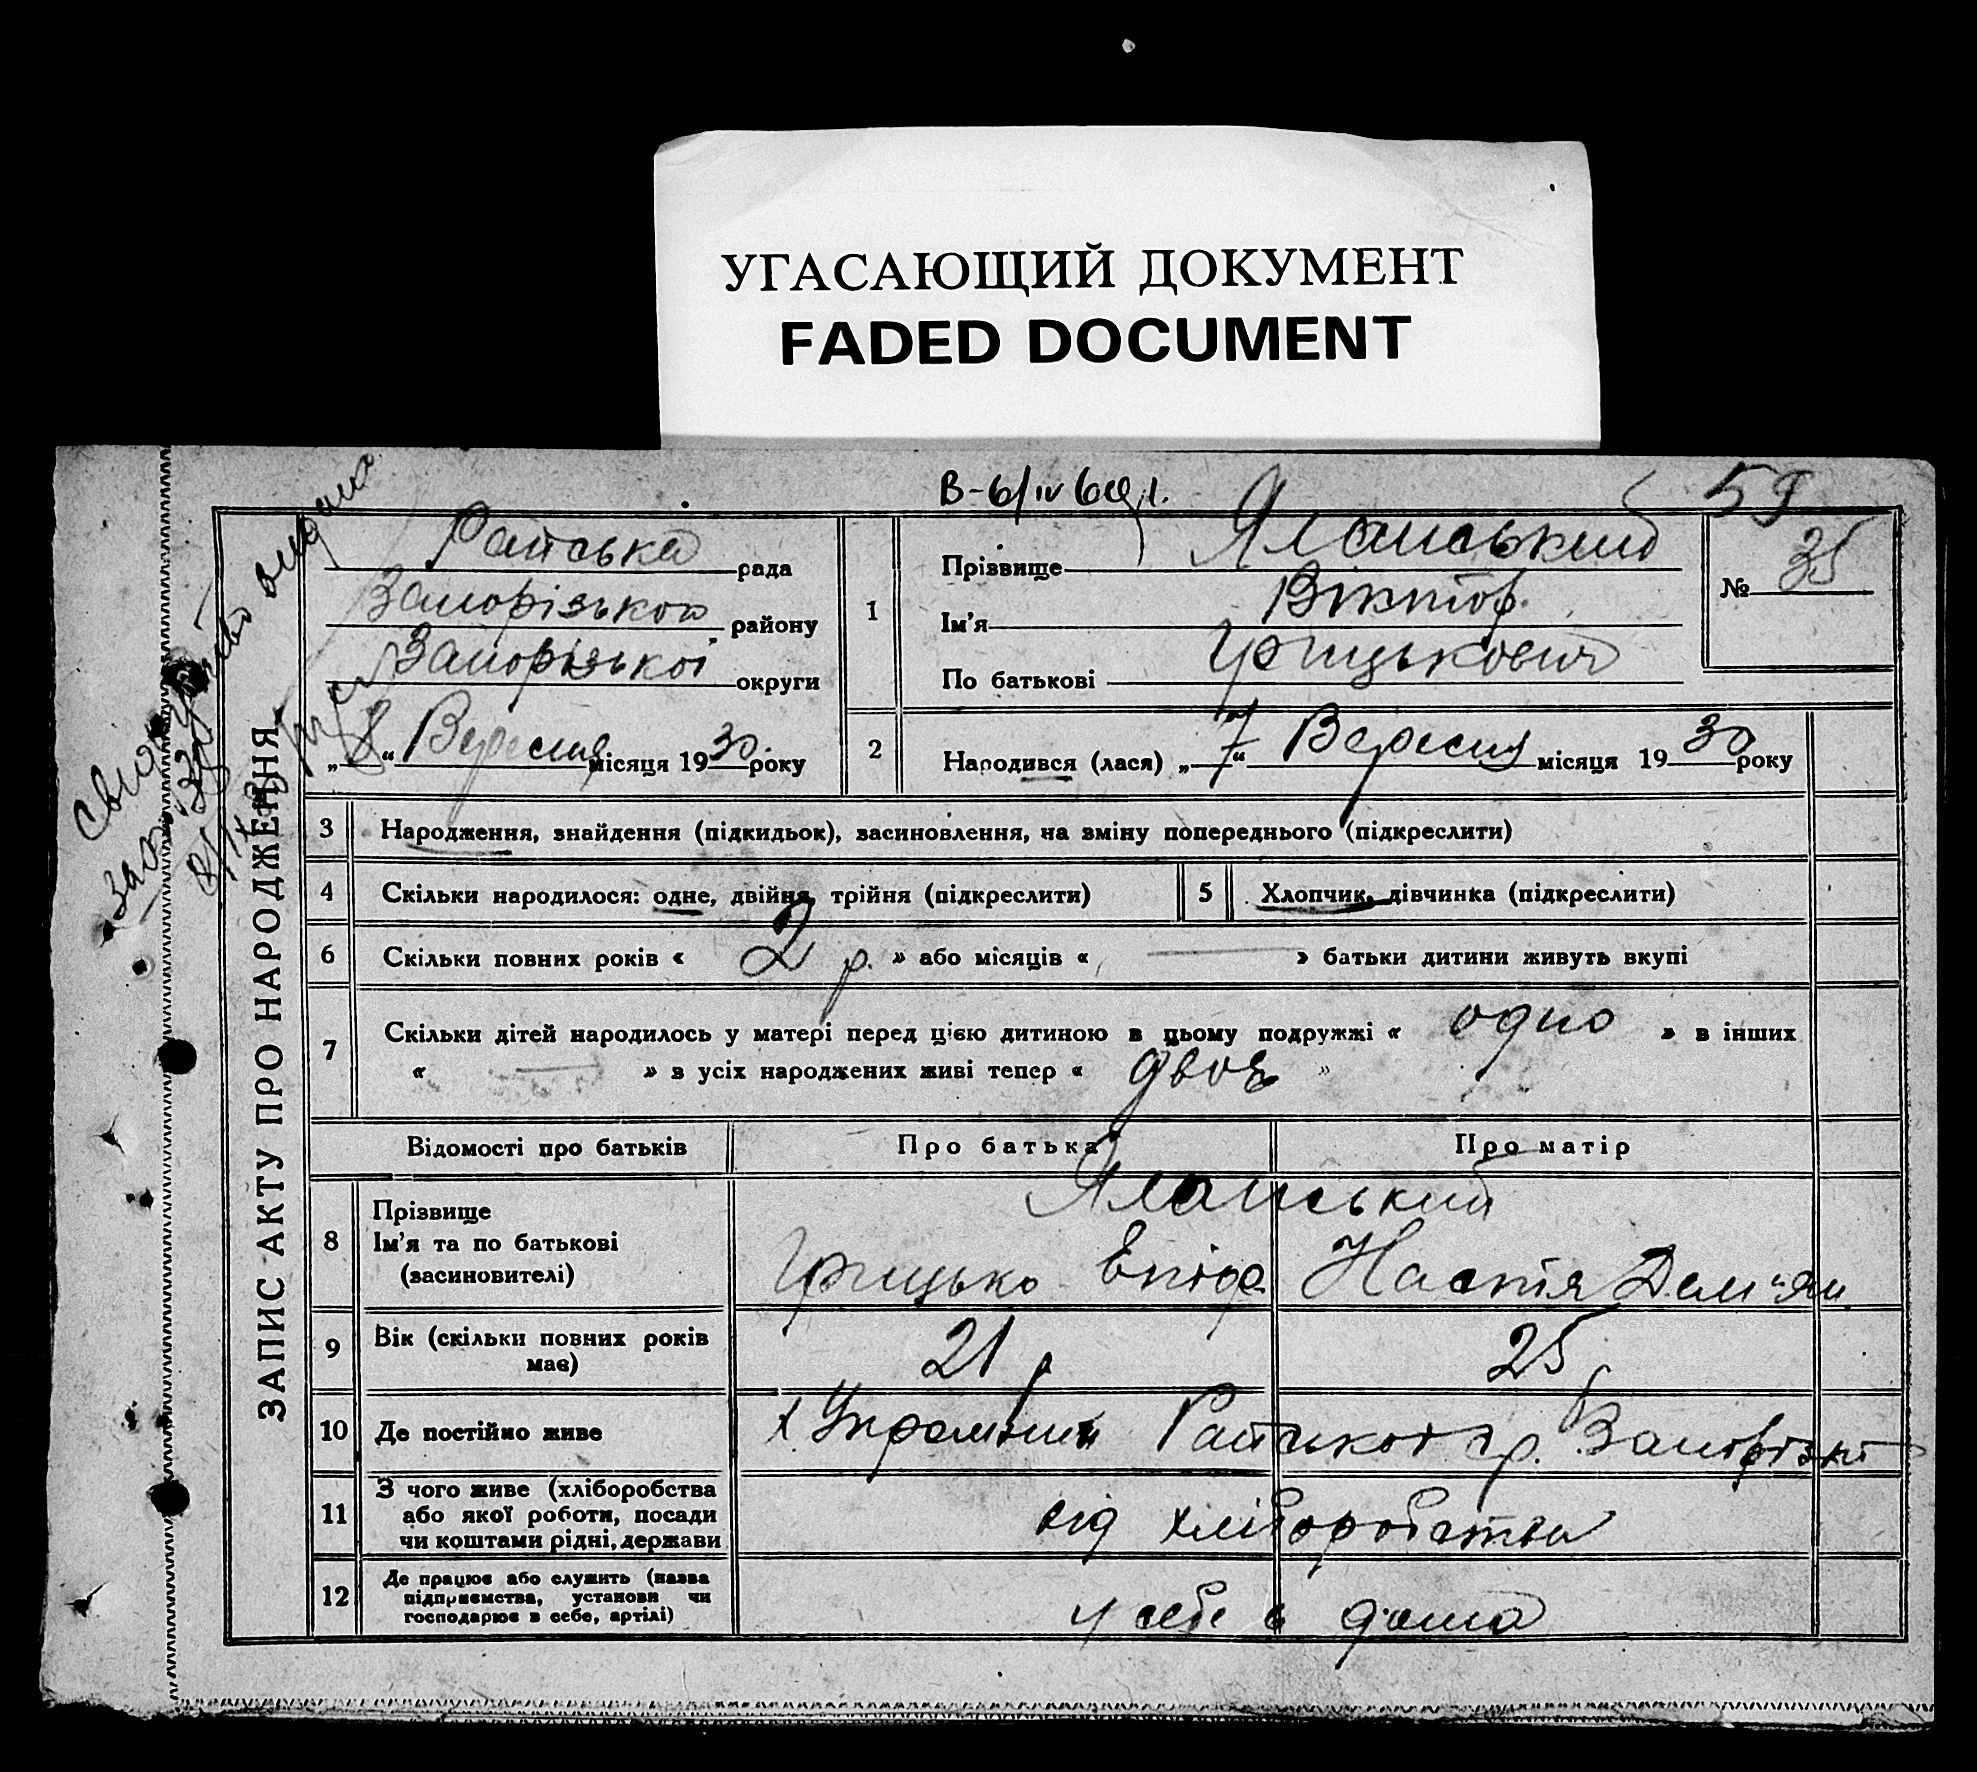 УГАСАЮЩИЙ ДОКУМЕНТ
FADED DOCUMENT
59
ЗАПИС АКТУ ПРО НАРОДЖЕННЯ
Райська рада
Запорізького району
Запорізької округи
„8“ Вересня місяця 1930 року
1
Прізвище Яланський
Ім'я Віктор
По батькові Грицькович
№ 35
2
Народився (лася) „7“ Вересня місяця 1930 року
3 Народження, знайдення (підкидьок), засиновлення, на зміну попереднього (підкреслити)
4 Скільки народилося: одне, двійня, трійня (підкреслити)
5 Хлопчик, дівчинка (підкреслити)
6 Скільки повних років « 2 р. » або місяців « — » батьки дитини живуть вкупі
7 Скільки дітей народилось у матері перед цією дитиною в цьому подружжі « одно » в інших
« — » в усіх народжених живі тепер « двоє »
Відомості про батьків Про батька Про матір
8 Прізвище Яланський
Ім'я та по батькові Грицько Настя Дем"ян.
(засиновителі)
9 Вік (скільки повних років має) 21 р 25 р
10 Де постійно живе Райської с/р.
11 З чого живе (хліборобства
або якої роботи, посади
чи коштами рідні, держави від хліборобства
12 Де працює або служить (назва
підприємства, установи чи
господарює в себе, артілі) у себе дома